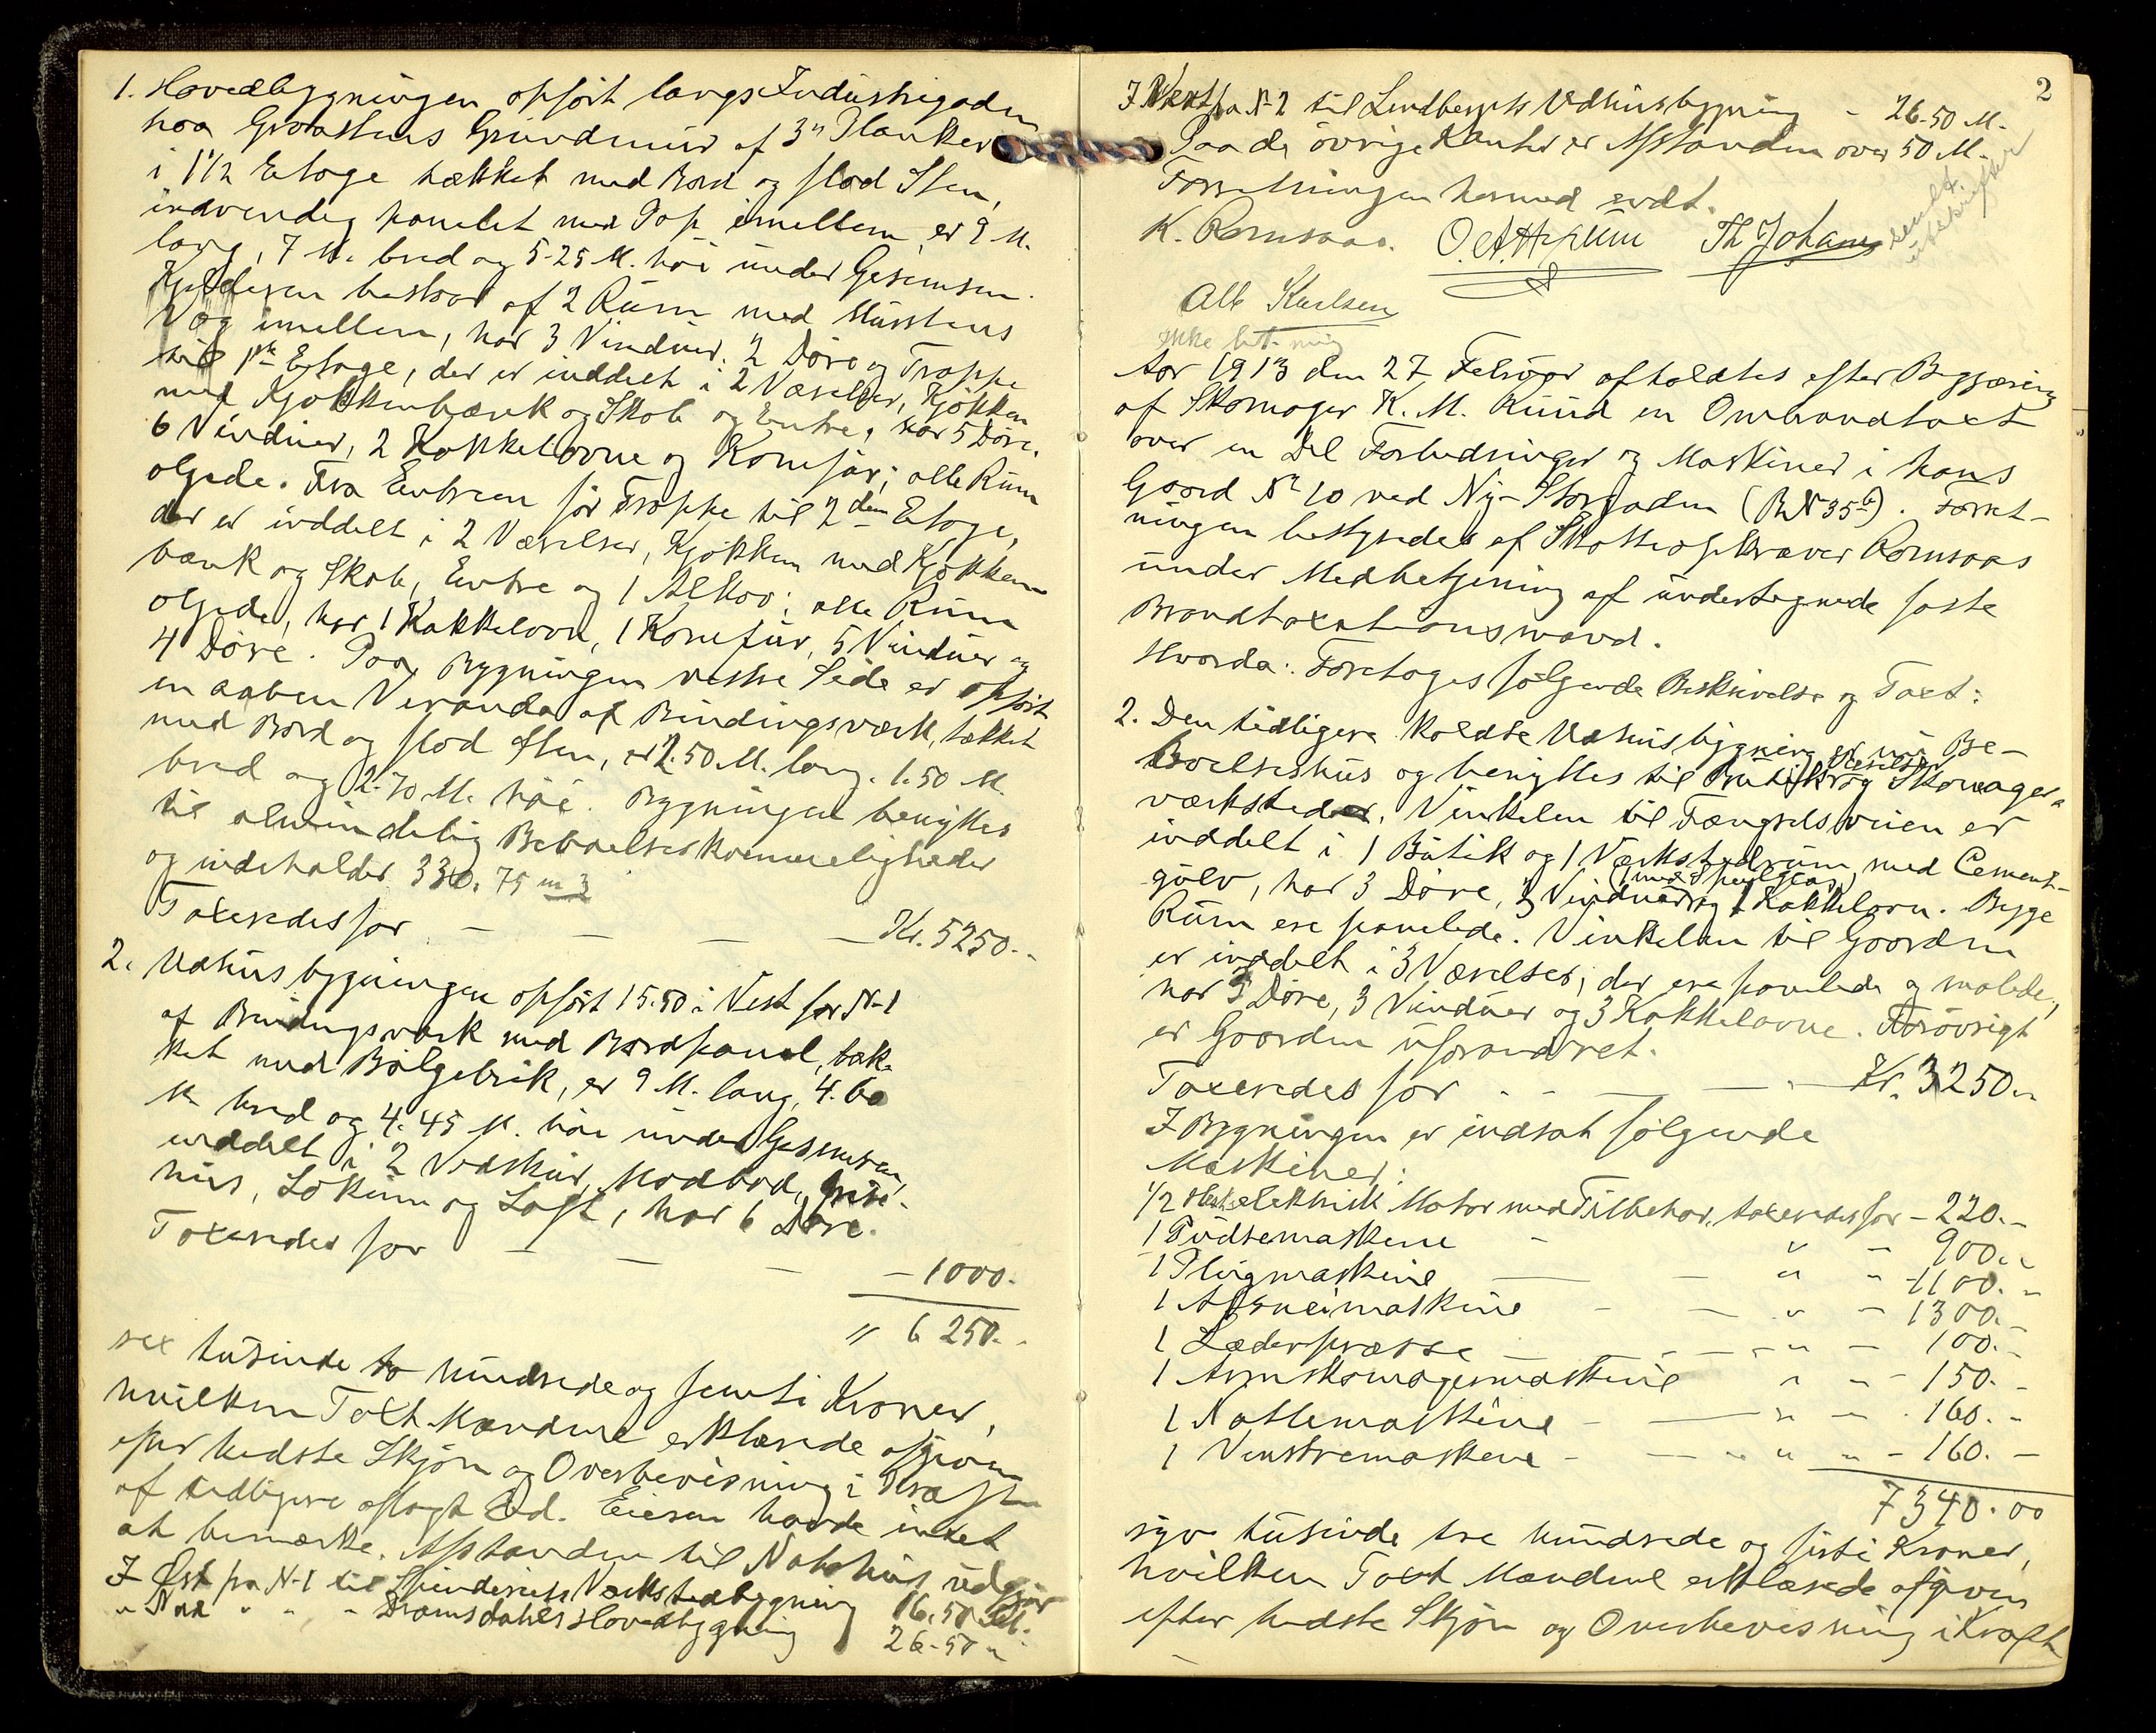 1. Hovedbygningen opfört langs Industrigaden
paa Graastens Grundmur af 3" Planker
i 1 1/2 Etage tækket med Bord og flad Sten,
indvendig panelet med Pap imellem, er 9 M.
lang, 7 M. bred og 5.25 M. höi under Gesemsen.
Kjelderen bestaar af 2 Rum med Murstens
Væg imellem, har 3 Vinduer, 2 Döre og Trappe
til 1ste Etage, der er inddelt i 2 Værelser, Kjökken
med Kjökkenbænk og Skab og Entre, har 5 Döre,
6 Vinduer, 2 Kakkelovne og Komfur; alle Rum
oljede. Fra Entreen för Trappe til 2den Etage,
der er inddelt i 2 Værelser, Kjökken med Kjökken
bænk og Skab, Entre og 1 Alkov; alle Rum
oljede, har 1 Kakkelovn, 1 Komfur, 5 Vinduer og
4 Döre. Paa Bygningen vestre Side er opfört
en aaben Veranda af Bindingsværk, tækket
med Bord og flad Sten, er 2.50 M. lang, 1.50 M.
bred og 2.70 M. höi. Bygningen benyttes
til almindelig Beboelsesbekvemmeligheder
og indeholder 330.75 m3
Taxeredes for — — — — Kr. 5250.-
2. Udhusbygningen opfört 15.50 i Vest for N-1
af Bindingsværk med Bordpanel, tæk-
ket med Bölgeblik, er 9 M. lang, 4.60
M. bred og 4.45 M. höi under Gesemsen,
inddelt i 2 Vedskur, Madbod, Grise-
hus, Lokum og Loft, har 6 Döre.
Taxeredes for — — — — 1000.-
" 6250.-
sex tusinde to hundrede og femti Kroner,
hvilken Taxt Mændene erklærede afgiven
efter bedste Skjön og Overbevisning i Kraft
af tidligere aflagt Ed. Eieren havde intet
at bemærke. Afstanden til Nabohus udgjör
I Öst fra N-1 til Spinderiets Værkstedbygning 16.50 M.
" Nord " " - Dramsdahls Hovedbygning 26.50 "
2
I Vest fra N-2 til Lundbergets Udhusbygning - 26.50 M.
Paa de övrige Kanter er Afstanden over 50 M.
Forretningen hermed endt.
K. Romsaas. Th Johans
Alb Karlsen
Aar 1913 den 27 Februar afholdtes efter Begjæring
af Skomager K. M. Ruud en Ombrandtaxt
over en Del Forbedringer og Maskiner i hans
Gaard No 10 ved Ny-Storgaden (BN 35b). Forret-
ningen bestyredes af Skatteopkræver Romsaas
under Medbetjening af undertegnede faste
Brandtaxationsmænd.
Hvorda: Foretages fölgende Beskrivelse og Taxt:
2. Den tidligere kaldte Udhusbygning er nu Be-
boelseshus og benyttes til Butik, Værelser og Skomager-
værksteder. Vinkelen til Fængselsveien er
inddelt i 1 Butik og 1 Værkstedrum med Cement-
gulv, har 3 Döre, 3 Vinduer (med Speilglas) og 1 Kakkelovn. Begge
Rum ere panelede. Vinkelen til Gaarden
er inddelt i 3 Værelser, der ere panelede og malede,
har 5 Döre, 3 Vinduer og 3 Kakkelovne. Forövrigt
er Gaarden uforandret.
Taxeredes for - - — — - Kr. 3250.-
I Bygningen er indsat fölgende
Maskiner:
1/2 Hest. elektrisk Motor med Tilbehör, taxeredes for - 220.-
1 Pudsemaskine - " - 900.-
1 Plugmaskine — - " - 1100.-
1 Afsneimaskine - — " - 1300.-
1 Læderpresse — - - " - 100.-
1 Armskomagermaskine " - - 150.-
1 Naatlemaskine - — " - 160.-
1 Venstremaskine - — - " - - 160.-
7340.00
syv tusinde tre hundrede og firti Kroner,
hvilken Taxt Mændene erklærede afgiven
efter bedste Skjön og Overbevisning i Kraft